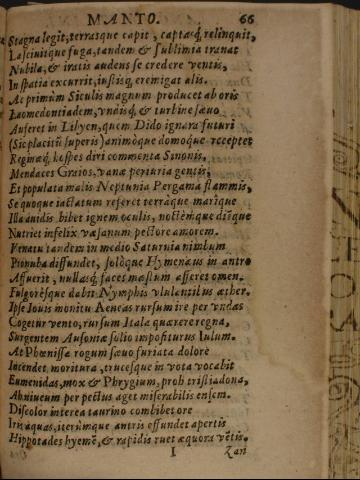 MANTO. 66
Stagna legit, terrasque capit, captasq́; relinquit,
Lasciuitque fuga, tandem & sublimia tranat
Nubila, & iratis audens se credere ventis,
In spatia excurrit, iussisq; eremigat alis.
At primùm Siculis magnum producet ab oris
Laomedontiadem, vndisq́, & turbine sæuo
Auferet in Libyen, quem Dido ignara futuri
(Sic placitũ superis) animòque domoque receptet
Reginæq́, hospes diri commenta Sinonis,
Mendaces Graios, vanæ periuria gentis,
Et populata malis Neptunia Pergama flammis,
Se quoque iactatum referet terráque marique
Illa auidis bibet ignem oculis, noctémque diũque
Nutriet infelix væsanum pectore amorem.
Venatu tandem in medio Saturnia nimbum
Pronuba diffundet, solòque Hymenæus in antro
Affuerit, nullasq́; faces mæstum afferet omen.
Fulgorésque dabit Nymphis vlulantibus æther.
Ipse Iouis monitu Aeneas rursum ire per vndas
Cogetur vento; rursum Itala quærere regna,
Surgentem Ausoniæ solio impositurus Iulum.
At Phœnissa rogum sæuo furiata dolore
Incendet moritura, trucesque in vota vocabit
Eumenidas, mox & Phrygium, proh tristia dona,
Abniueum per pectus aget miserabilis ensem.
Discolor interea taurino combibet ore
Iris aquas, iterùmque antris effundet apertis
Hippotades hyemẽ, & rapidis ruet æquora vẽtis.
I Zan